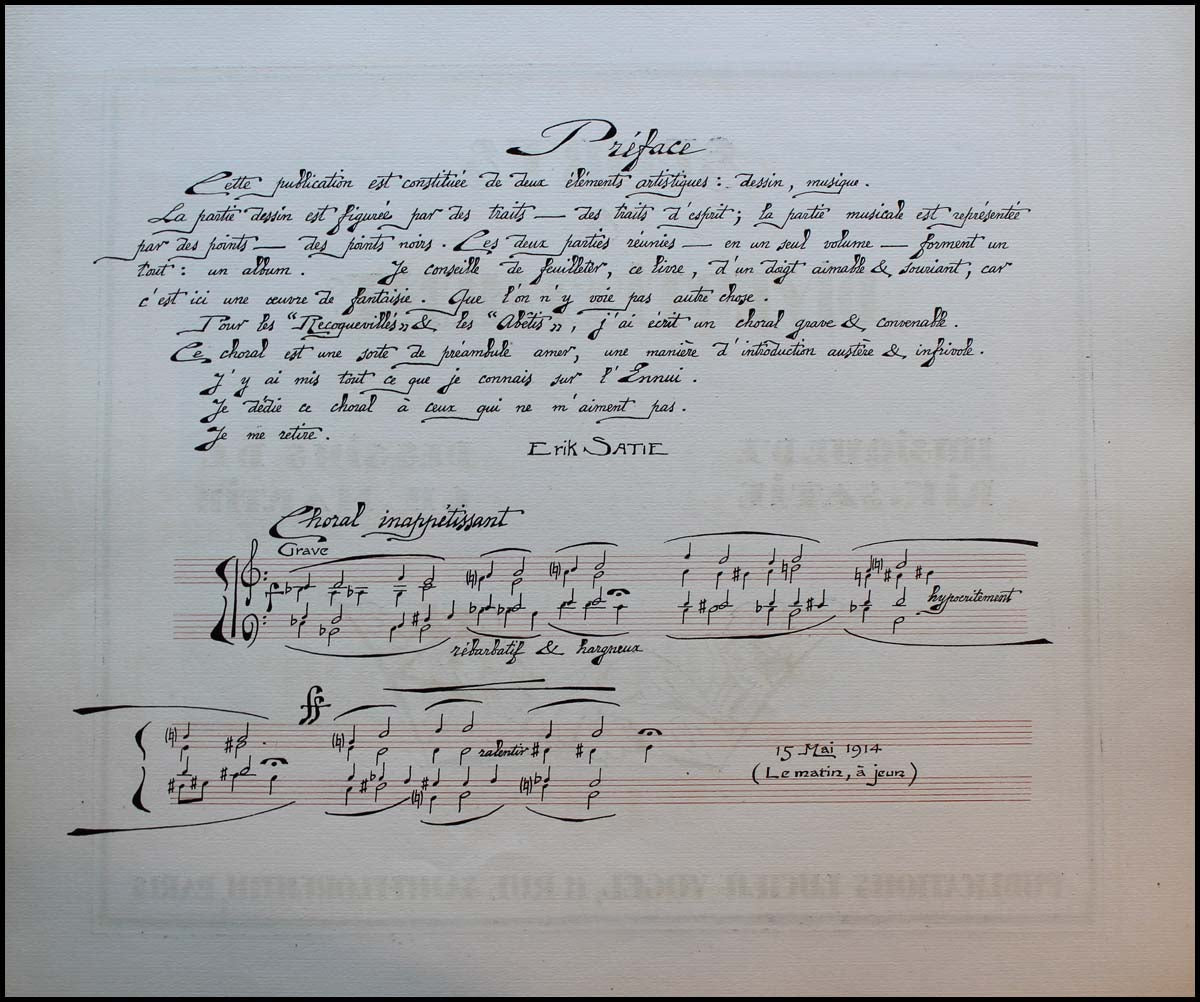 Préface
Cette publication est constituée de deux éléments artistiques : dessin, musique.
La partie dessin est figurée par des traits — des traits d'esprit ; la partie musicale est représentée
par des points — des points noirs. Ces deux parties réunies — en un seul volume — forment un
tout : un album. Je conseille de feuilleter, ce livre, d'un doigt aimable & souriant, car
c'est ici une œuvre de fantaisie. Que l'on n'y voie pas autre chose.
Pour les "Recoquevillés" & les "Abêtis", j'ai écrit un choral grave & convenable.
Ce choral est une sorte de préambule amer, une manière d'introduction austère & infrivole.
J'y ai mis tout ce que je connais sur l'Ennui.
Je dédie ce choral à ceux qui ne m'aiment pas.
Je me retire.
Erik SATIE
Choral inappétissant
Grave
f
hypocritement
rébarbatif & hargneux
ff
ralentir
15 Mai 1914
(Le matin, à jeun)
PUBLICATIONS LUCIEN VOGEL, 11 RUE SAINT-FLORENTIN, PARIS